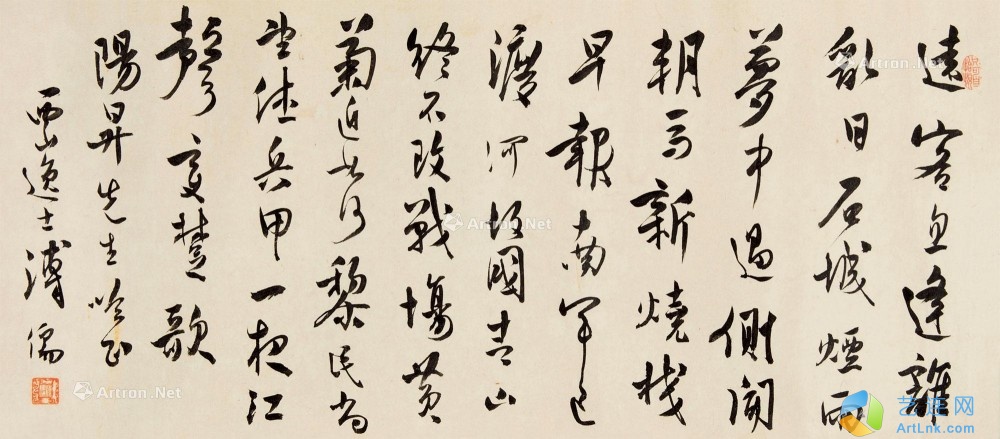 遠客忽逢離
亂日石城煙雨
夢中過側聞
朝馬新燒棧
早報南軍已
渡河故國青山
終不改戰場黃
菊近如何黎民尚
望休兵甲一夜江
聲變楚歌
陽昇先生吟正
西山逸士溥儒
Artron.Net
Artron.Net
Artron.Net
Artron.Net
Artron.Net
艺连网
ArtLnk.com